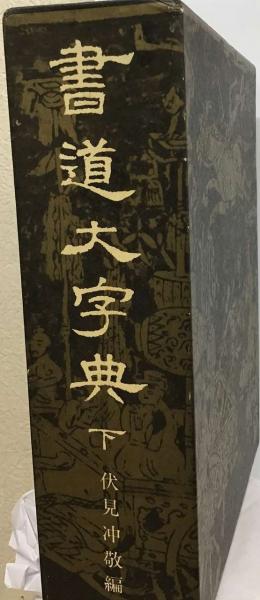 書道大字典 下 伏見冲敬編